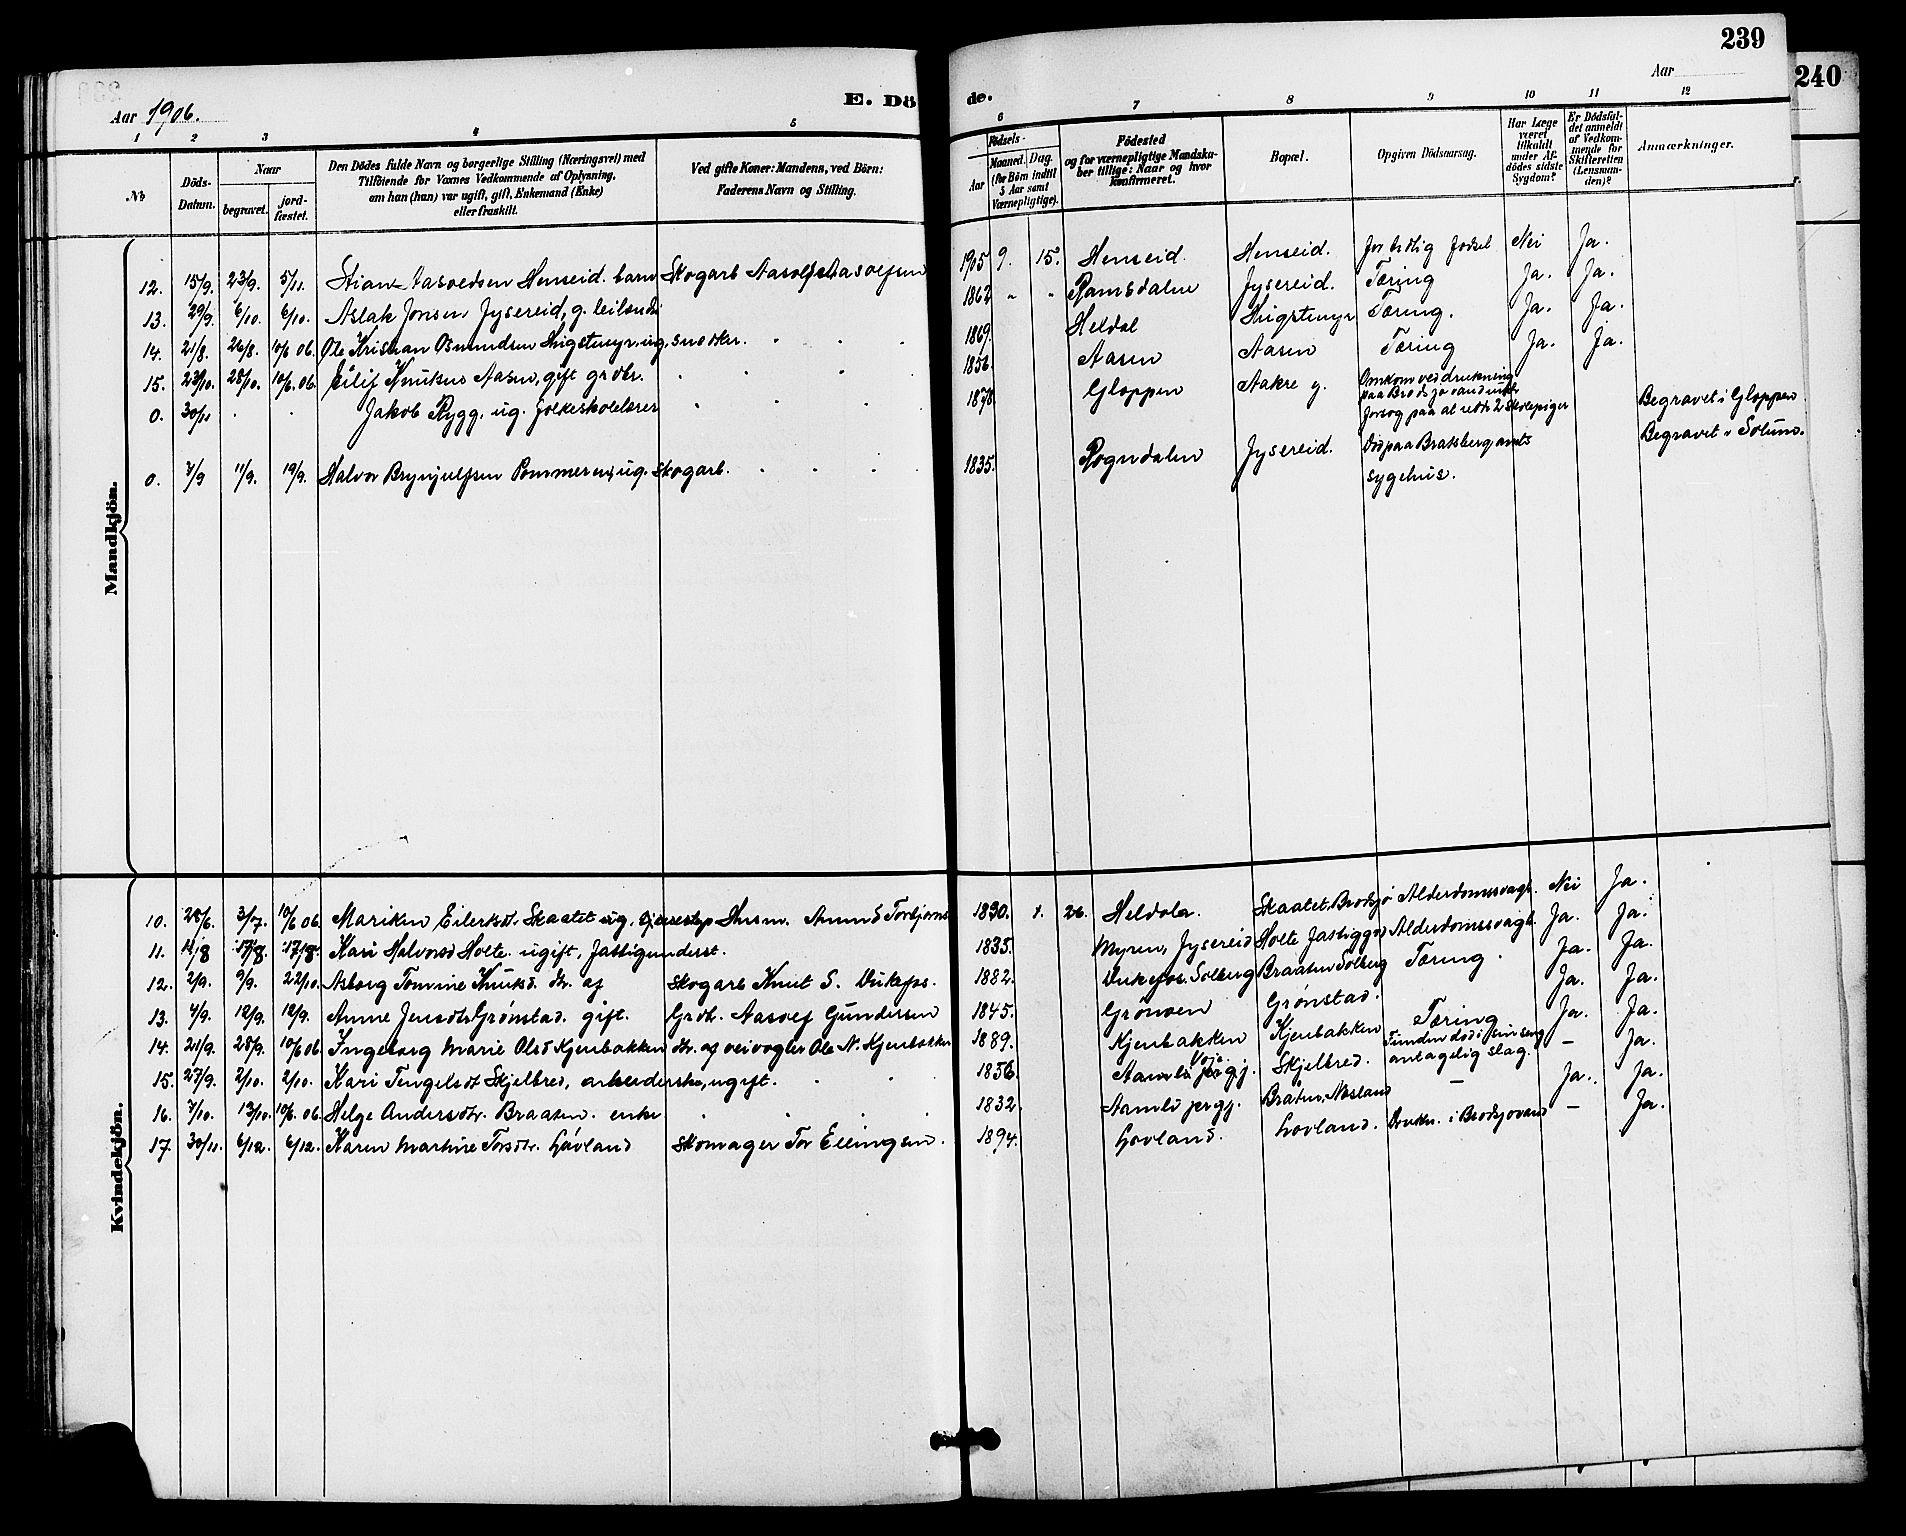 239
240
Aar 1906.
E. Dö
de.
Aar
1 2 3 4 5 6 7 8 9 10 11 12
No
Döds-Datum.
Naar
begravet.
jord-fæstet.
Den Dödes fulde Navn og borgerlige Stilling (Næringsvei) med
Tilföiende for Voxnes Vedkommende af Oplysning,
om han (hun) var ugift, gift, Enkemand (Enke)
eller fraskilt.
Ved gifte Koner: Mandens, ved Börn:
Faderens Navn og Stilling.
Födsels-
Aar
Maaned. Dag.
(for Börn indtil
5 Aar samt
Værnepligtige).
Födested
og for værnepligtige Mandska-
ber tillige: Naar og hvor
konfirmeret.
Bopæl.
Opgiven Dödsaarsag.
Har Læge
været
tilkaldt
under Af-
dödes sidste
Sygdom?
Er Dödsfal-
det anmeldt
af Vedkom-
mende for
Skifteretten
(Lensman-
den)?
Anmærkninger.
Mandkjön.
12. 15/9. 23/9. 5/11. Stian Aasoldsen Henseid. barn Skogarb Aasolf Aasolfsen 1905 9. 15. Henseid. Henseid. for tidlig fødsel Nei Ja.
13. 29/9. 6/10. 6/10. Aslak Jonsen Jysereid, g. leilænd. 1862 " " Ramsdalen Jysereid. Tæring Ja. Ja.
14. 21/8. 26/8. 10/6 06. Ole Kristian Osmundsen Stigstmyr, ug. snedker. 1869. Heldal Stigstmyr Tæring. Ja. Ja.
15. 23/10. 28/10. 10/6. 06. Eilif Knutsen Aasen, gift grdbr. 1856. Aasen Aasen Tæring Ja. Ja.
0. 30/11 Jakob Rygg, ug. folkeskolelærer 1878 Gloppen Aakre g. Omkom ved drukning
paa Brodsjøvand under
forsøg paa at redde 2 skolepiger Begravet i Gloppen
0. 7/9 11/9. 19/9. Halvor Brynjulfsen Pommeren, ug. Skogarb. 1835. Rogndalen Jysereid. Død paa Bratsberg amts
sygehus. Begravet i Solum.
Kvindekjön.
10. 28/6. 3/7. 10/6 06. Mariken Eilertsdt. Skaatet ug. Husm. 1830. 1. 26. Heldola Skaatet, Brodsjø Alderdomssvagh. Nei Ja.
11. 11/8 17/8. 17/8. Kari Halvorsd Holte. ugift, fattigunderst. 1835. Myren, Jysereid Holte fastiggd Alderdomssvagh. Ja. Ja.
12. 2/9. 9/9. 22/10. Asborg Tomine Knutsd. dtr. af Skogarb Knut S. Dukefos. 1882. Dukefos. Solberg Braaten Solberg Tæring. Ja. Ja.
13. 4/9. 12/9. 12/9. Anne Jensdtr Grønstad. gift. Grdbr. Aasolf Gundersen 1845. Grønven Grønstad. Ja. Ja.
14. 21/9. 28/9. 10/6 06 Ingeborg Marie Olsd Kjenbakken dtr. af veivogter Ole N. Kjenbakken 1889. Kjenbakken Kjenbakken Tæring Ja. Ja.
15. 27/9. 2/10. 2/10. Kari Tengelsdt Skjelbred, arbeiderske, ugift. 1856. Aamli prgj. Skjelbred. Funden død i sin seng
antagelig slag. – Ja.
16. 7/10. 13/10. 10/6. 06 Helge Andersdtr. Braaten. enke 1832. Aamli prgj. Braten, Næsland – Ja. Ja.
17. 30/11. 6/12. 6/12. Karen Martine Torsdtr. Lovland Skomager Tor Ellingsen. 1894. Lovland. Lovland. Drukn. i Brodsjovand – Ja.